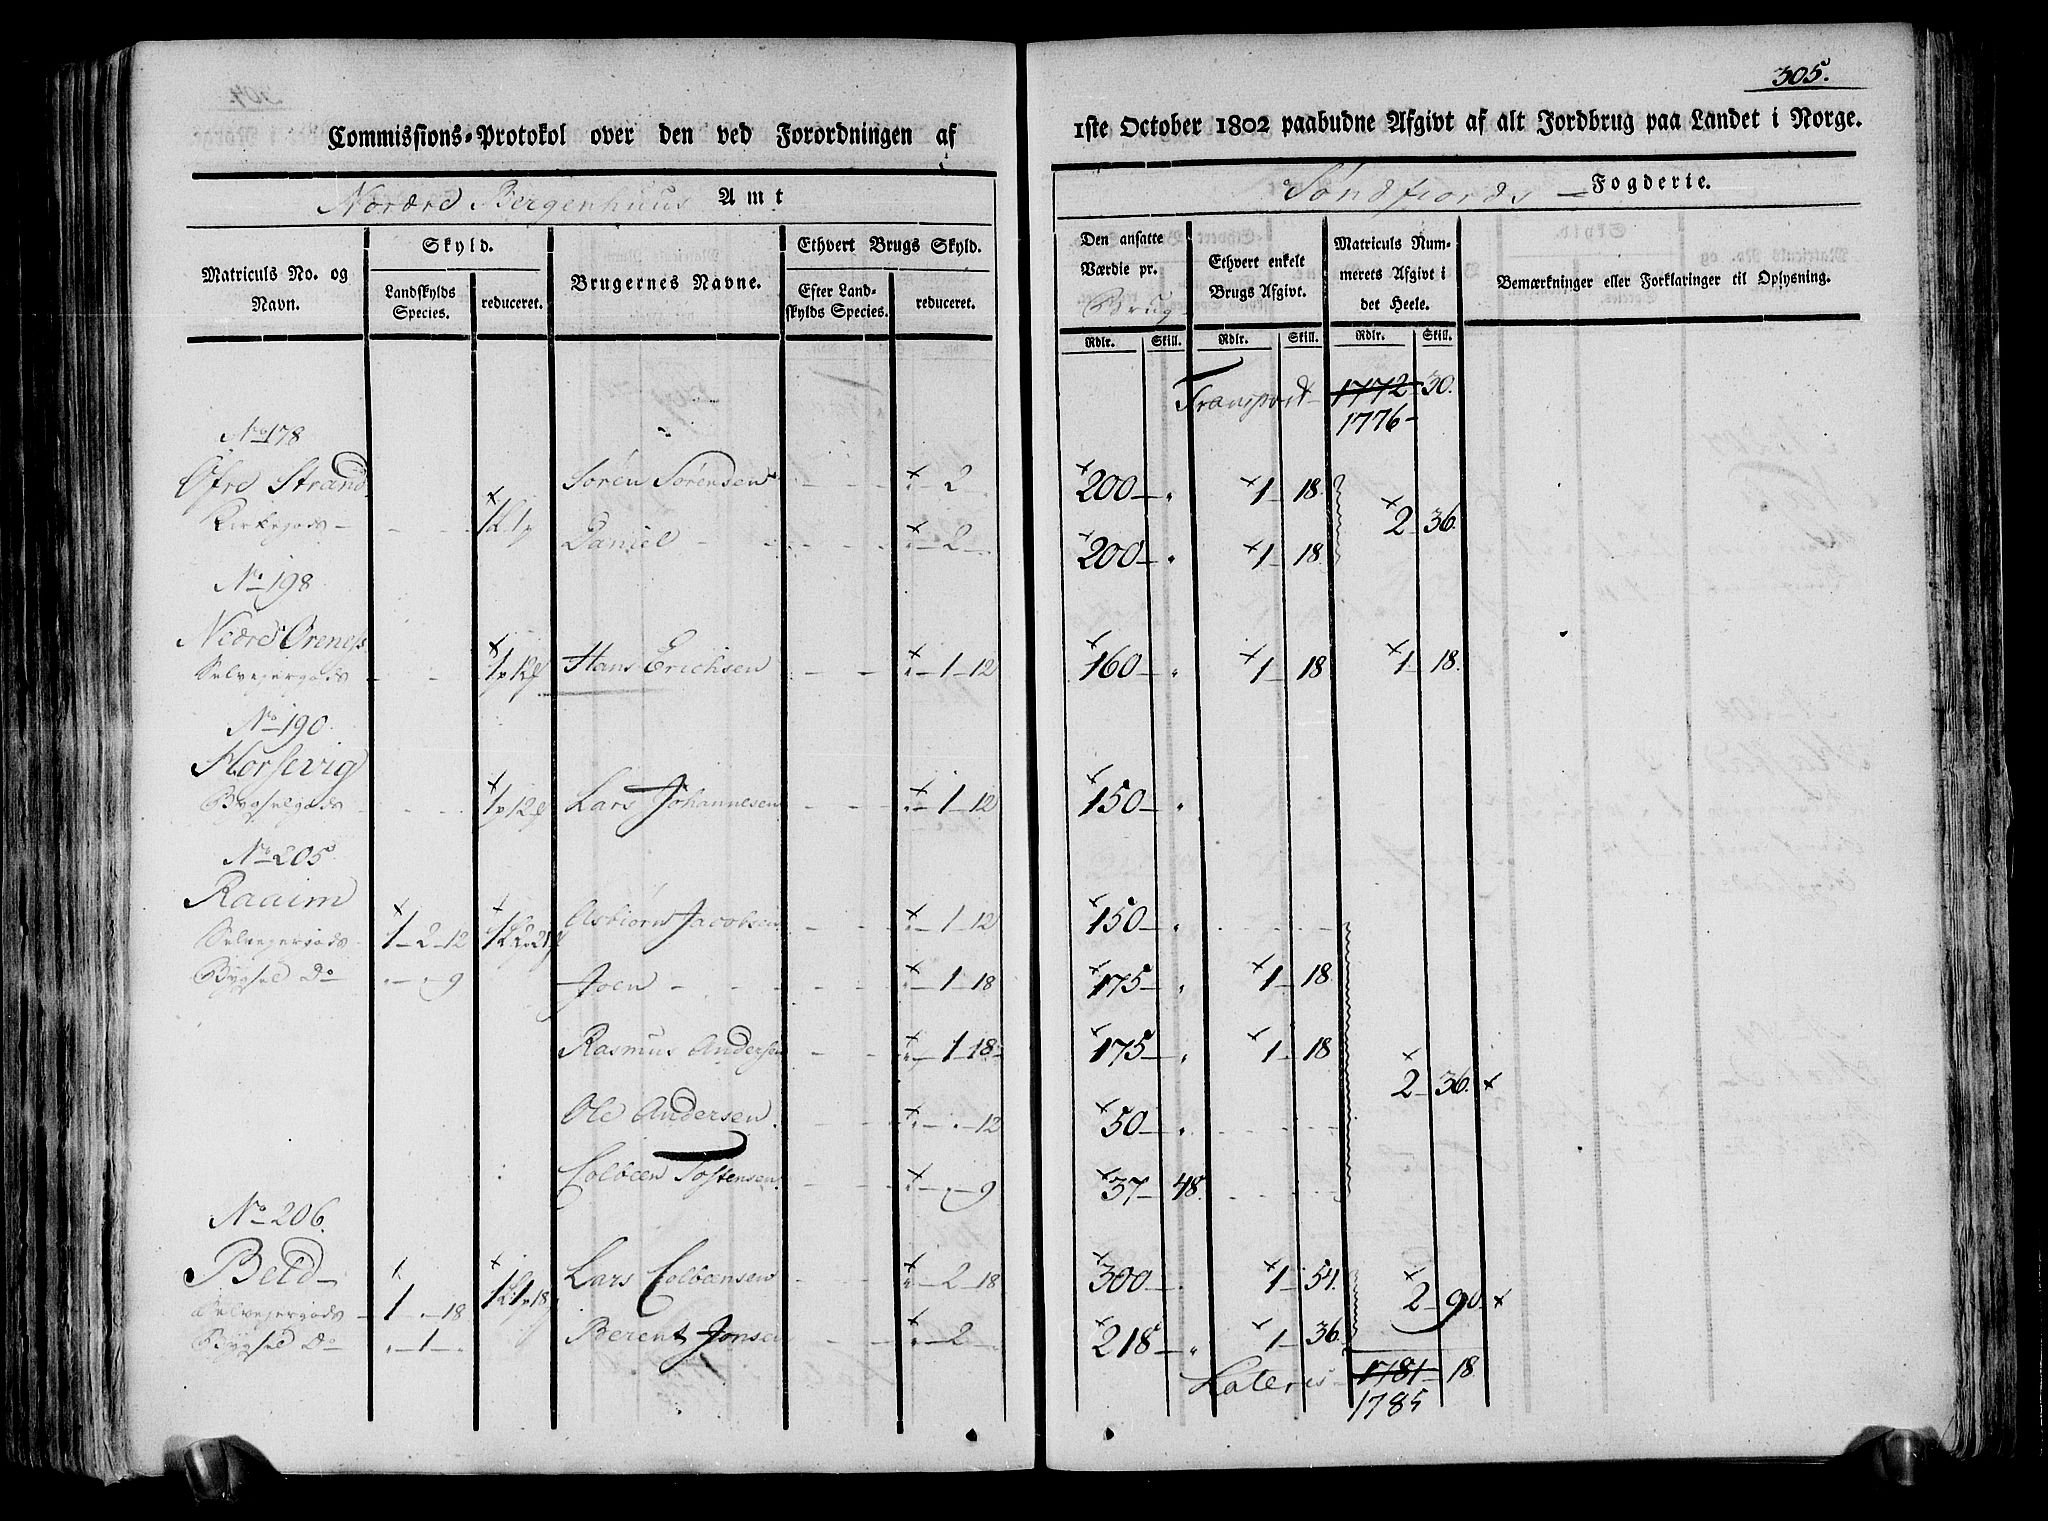 305.
Commissions-Protokol over den ved Forordningen af
1ste October 1802 paabudne Afgivt af alt Jordbrug paa Landet i Norge.
Nordre Bergenhuus Amt
Søndfiords Fogderie.
Matriculs No. og Navn.
Skyld.
Landskylds Species.
reduceret.
Brugernes Navne.
Ethvert Brugs Skyld.
Efter Landskylds Species.
reduceret.
Den ansatte Værdie pr. Brug
Ethvert enkelt Brugs Afgivt.
Matriculs Nummerets Afgivt i det Heele.
Bemærkninger eller Forklaringer til Oplysning.
Rdlr. Skill. Rdlr. Skill. Rdlr. Skill.
Transport 1772 30.
1776
No 178
Øfre Strand Søren Sørensen 2 200 1 18.
Kirkegods 2 36.
Daniel 2 200 1 18.
No 198
Nedre Ørenes
Selvejergods Hans Erichsen 1 12 160 1 18 1 18.
No 190.
Horsevig
Bygselgods Lars Johannesen 1 12 150
No 205
Raaim
Selvejergods 1 2 12 Asbiørn Jacobsen 1 12 150
Bygsel Do 9 Joen 1 18 175 1 18.
Rasmus Andersen 1 18 175 1 18
2 36.
Ole Andersen. 12 50
Colben Tostensen 9 37 48.
No 206.
Beld Lars Colbensen 2 18 300 1 54.
Selvejergods 1 18 2 90.
Bygsel Do 1 Berent Jonsen 2 218 1 36.
Lateris 1781 18.
1785